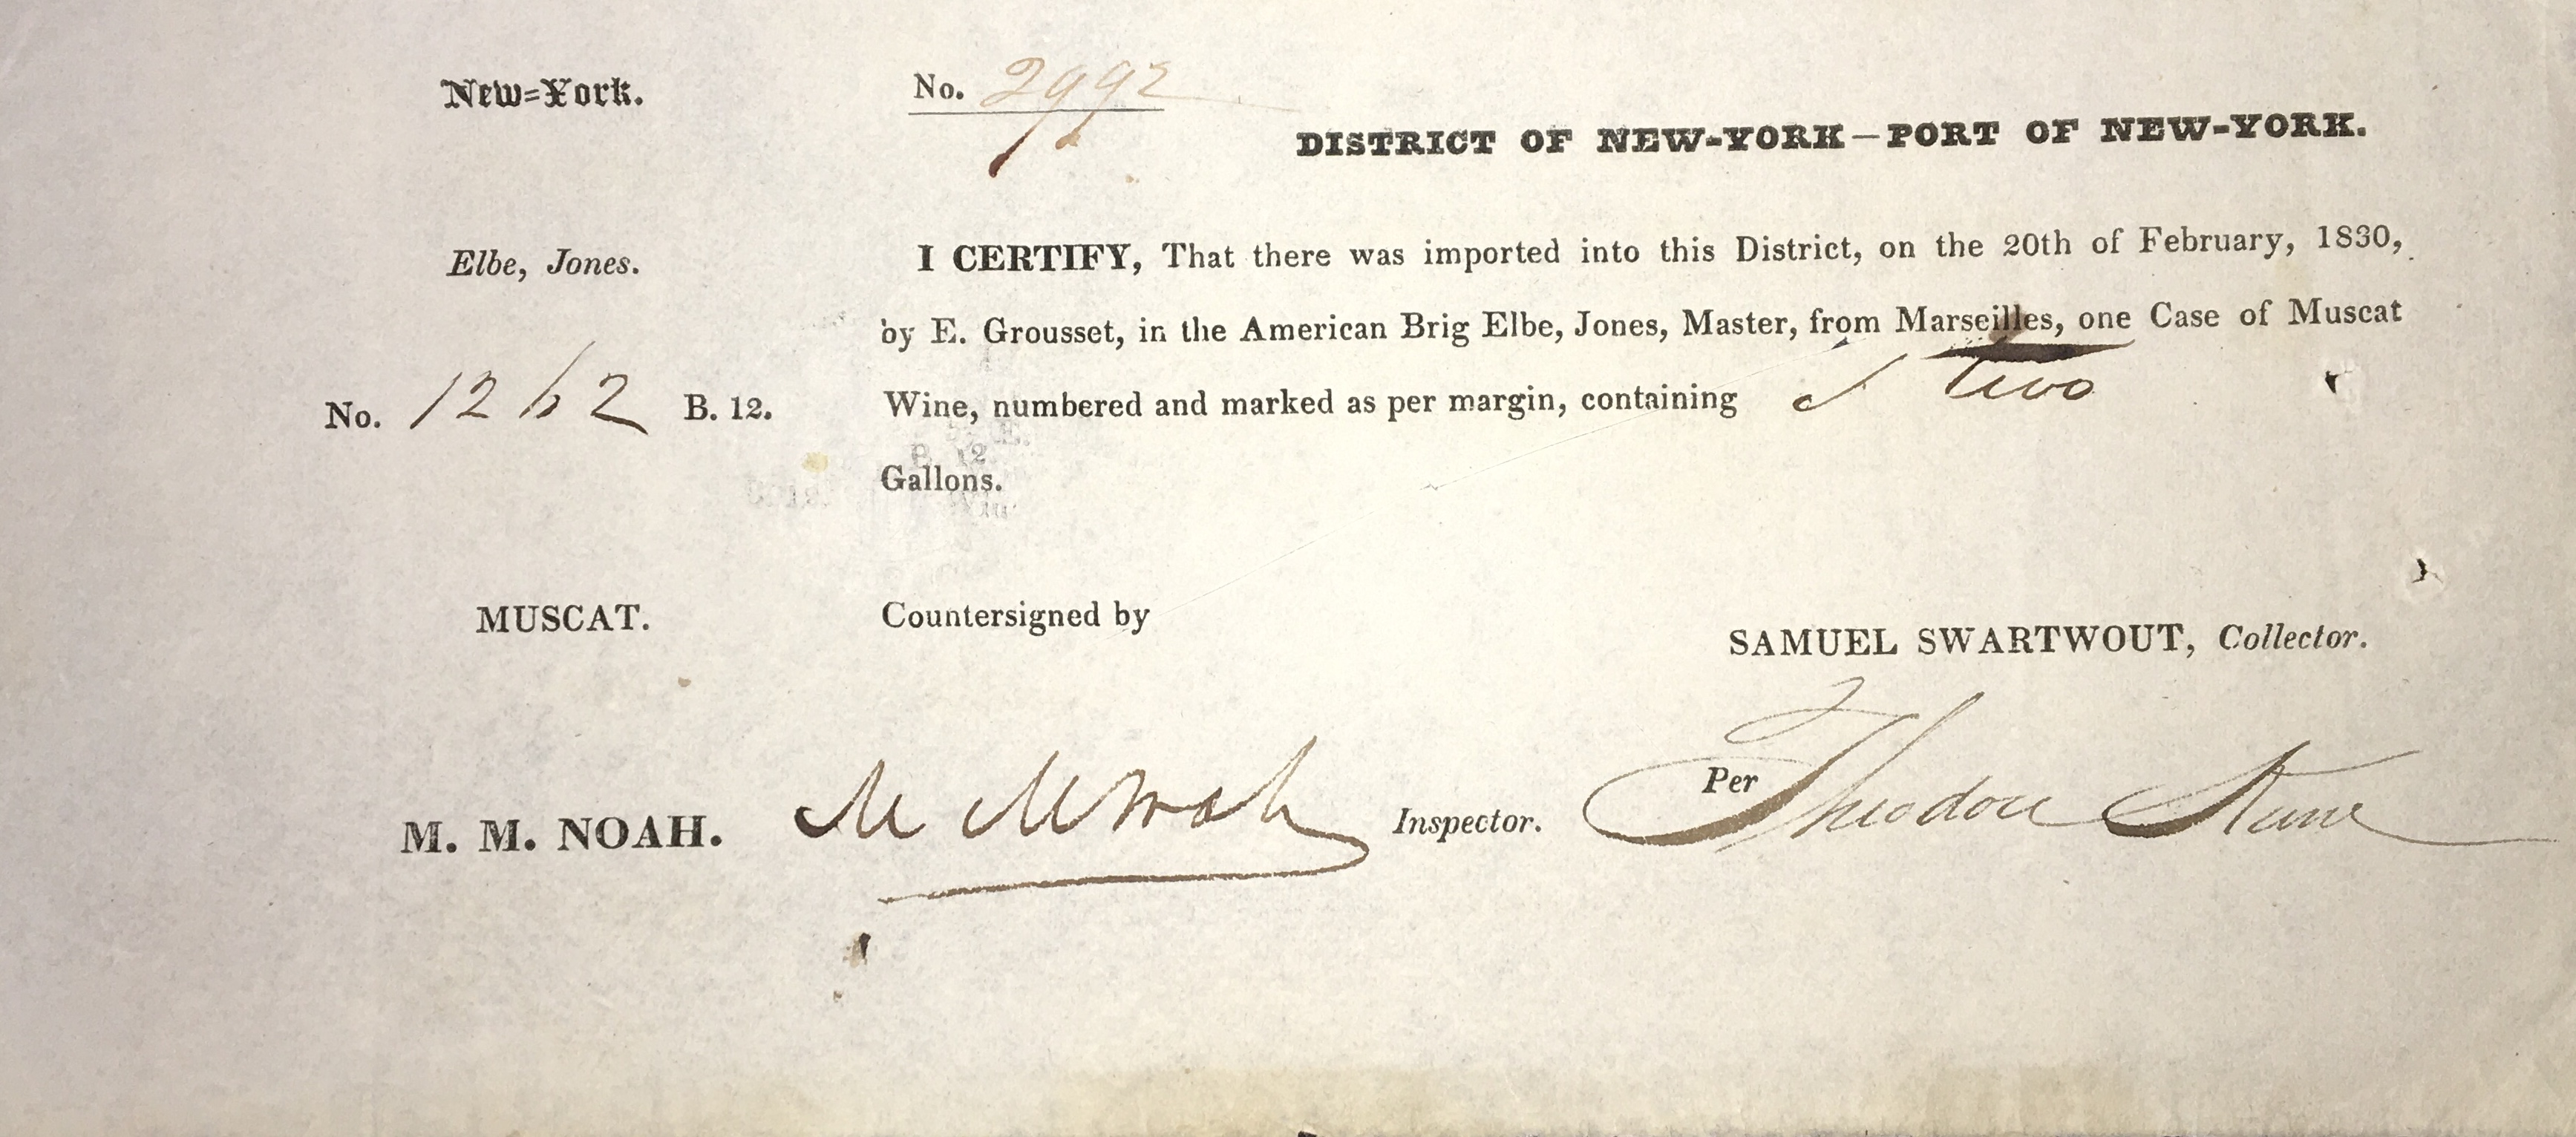 New=York.
No. 2992
DISTRICT OF NEW-YORK—PORT OF NEW-YORK.
Elbe, Jones.
I CERTIFY, That there was imported into this District, on the 20th of February, 1830,
by E. Grousset, in the American Brig Elbe, Jones, Master, from Marseilles, one Case of Muscat
No. 1262 B. 12.
Wine, numbered and marked as per margin, containing two
Gallons.
MUSCAT.
Countersigned by
SAMUEL SWARTWOUT, Collector.
M. M. NOAH. M M Noah Inspector.
Per Theodore